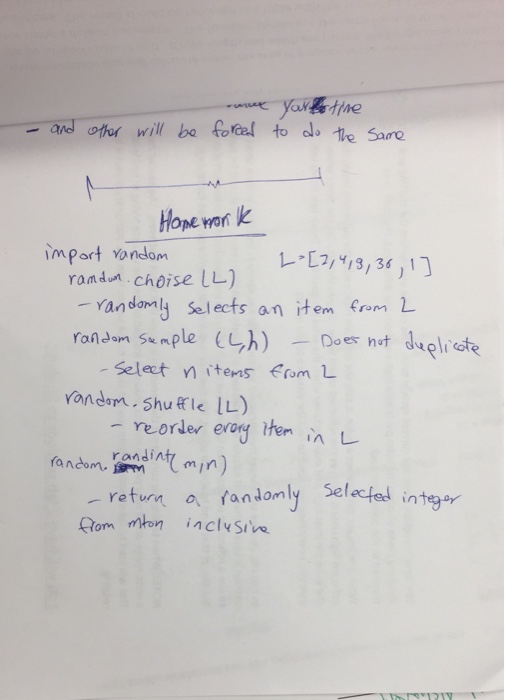 your time
- and other will be forced to do the same
Homework
import random L=[2,4,9,36,1]
random.choise (L)
- randomly selects an item from L
random sample (L,n) - Does not duplicate
- Select n items from L
random.shuffle (L)
- reorder every item in L
random. randint(m,n)
- return a randomly selected integer
from m to n inclusive